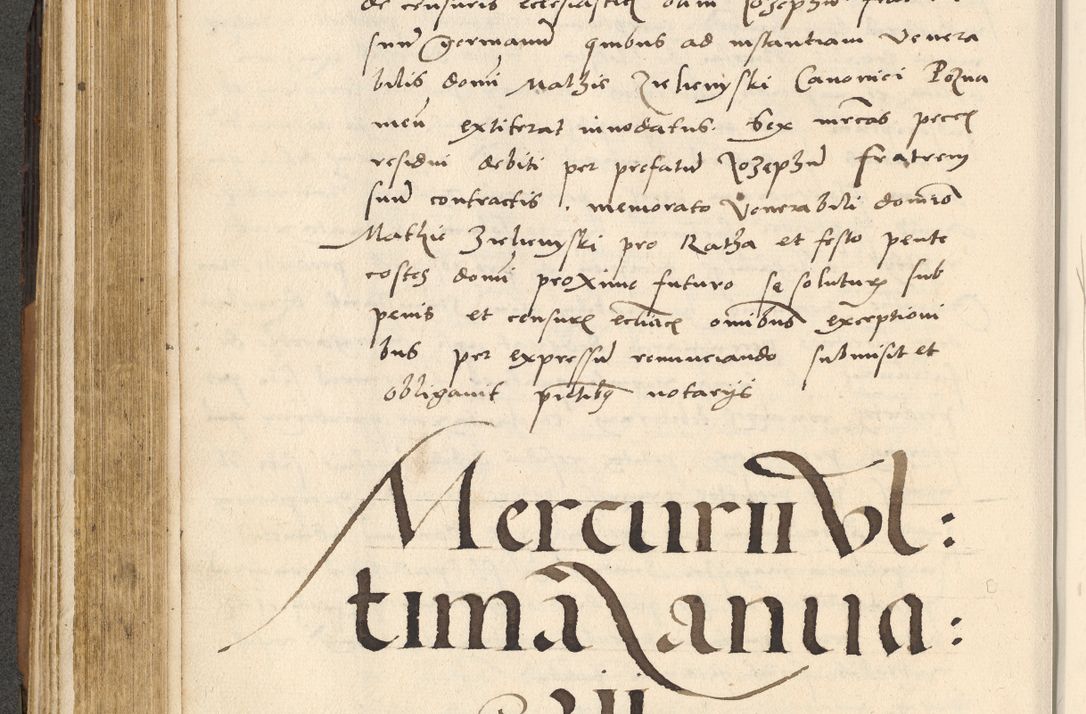 de censuris ecclesiasticis
suum germanum quibus ad instantiam Venera
bilis domi Mathie Zieleniyski Canonici Pozna
nien extiterat innodatus. Sex mrcas pecce
residui debiti per prefatum Jozephum fratrem
suum contractis . memorato Venerabili domino
Mathie Zieleniyski pro Ratha et festo pente
costes domi proxime futuro se soluturum sub
penis et censuris eccliacis omibus exceptioni
bus per expressum renunciando submisit et
obligavit pntibus notarys
Mercurii Vl:
tima Ianua:
rii